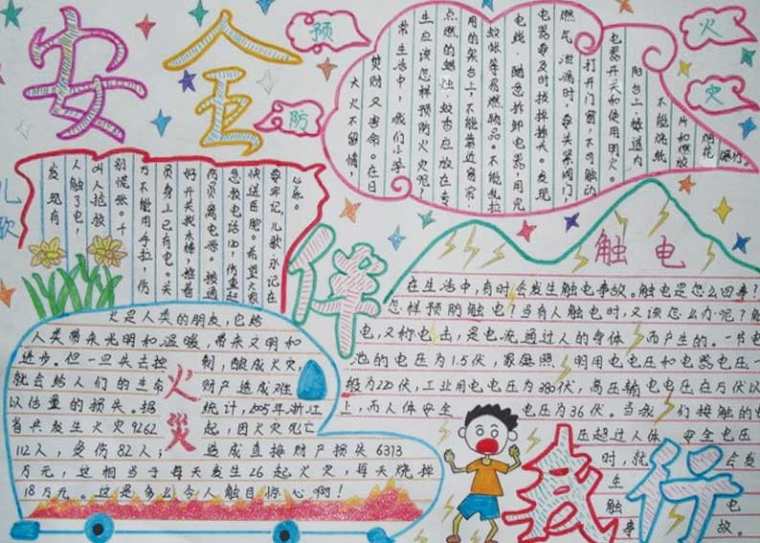 安
全
预
防
火
灾
大火不留情
焚财又害命。在日
常生活中，我们小学
生应该怎样预防火灾呢？
点燃的蜡烛、蚊香应放在专
用的架台上，不能靠近窗帘、
蚊帐等易燃物品。不能乱拉
电线，随意拆卸电器，用完
电器要及时拔掉插头。发现
燃气泄漏时，要关紧阀门，
打开门窗，不可触动
电器开关和使用明火。
阳台上、楼道内
不能烧纸
片和燃放
烟花
爆竹。
儿歌
发现有
人触了电，
叫人抢救
别慌张。千
万不能用手拉，伤
员身上已有电。关
好开关找木棒，挑着
伤员离电源。接通
急救电话120，伤重赶
快送医院。希望大家
要牢记，儿歌永记在
心底。
伴
触电
在生活中，有时会发生触电事故。触电是怎么回事？
怎样预防触电？当有人触电时，又该怎么办呢？触
电，又称电击，是电流通过人的身体而产生的。一节电
池的电压为1.5伏，家庭照明用电电压和电器电压一
般为220伏，工业用电电压为380伏，高压输电电压在万伏以
上，而人体安全电压为36伏。当我们接触的电
压超过人体安全电压
时，就会发
生触电
事故。
火灾
火是人类的朋友，它给
人类带来光明和温暖，带来文明和
进步。但一旦失去控制，酿成火灾，
就会给人们的生命财产造成难
以估量的损失。据统计，2005年浙江
省共发生火灾9262起，因火灾死亡
112人，受伤82人；造成直接财产损失6373
万元，这相当于每天发生26起火灾，每天烧掉
18万元。这是多么令人触目惊心啊！
我
行